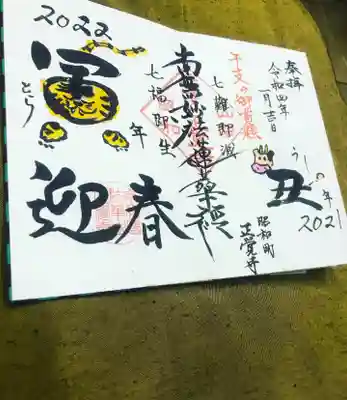 奉拝
令和四年
一月吉日
干支の御首題
うし
丑の年
2021
昭和町
正覚寺
七難即滅
南無妙法蓮華経
七福即生
2022
寅年
とら
迎春